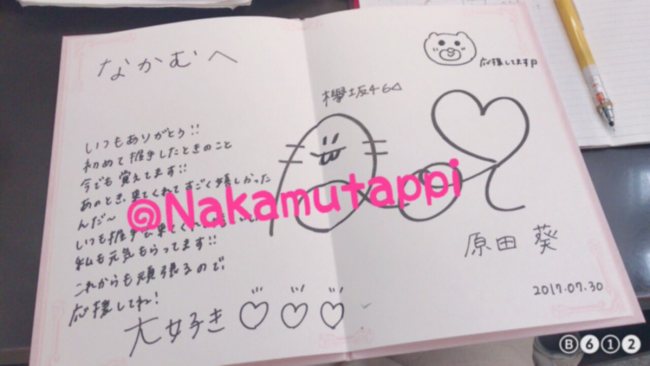 なかむへ
いつもありがとう!!
初めて握手したときのこと
今でも覚えてます!!
あのとき、来てくれてすごく嬉しかった
んだ〜
いつも握手会来てく
私も元気もらってます!!
これからも頑張るので
応援してね!
大好き♡♡♡
応援してます
欅坂46
原田 葵
2017.07.30
@Nakamutappi
B612